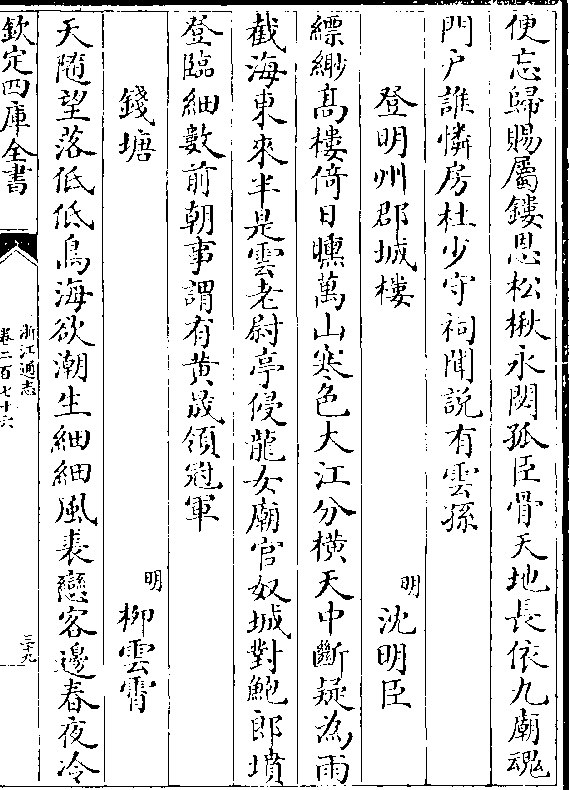 便忘歸賜屬鏤恩松楸永閟孤臣骨天地長依九廟魂
門户誰憐房杜少守祠聞説有雲孫
登明州郡城樓 明 沈明臣
縹緲髙樓倚日曛萬山寒色大江分橫天中斷疑為雨
截海東來半是雲老尉亭侵龍女廟官奴城對鮑郎墳
登臨細數前朝事謂有黄晟領冠軍
錢塘 明 柳雲霄
天隨望落低低鳥海欲潮生細細風裘戀客邊春夜冷
欽定四庫全書
浙江通志
卷二百七十六
三十九